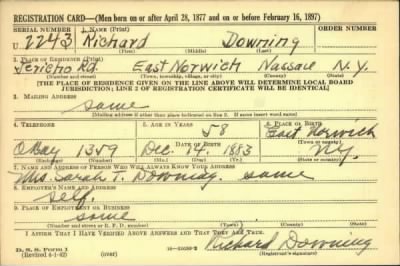 REGISTRATION CARD—(Men born on or after April 28, 1877 and on or before February 16, 1897)
SERIAL NUMBER 1. NAME (Print) ORDER NUMBER
U 2243 Richard Downing
(First) (Middle) (Last)
2. PLACE OF RESIDENCE (Print)
Jericho Rd. East Norwich Nassau N.Y.
(Number and street) (Town, township, village, or city) (County) (State)
[THE PLACE OF RESIDENCE GIVEN ON THE LINE ABOVE WILL DETERMINE LOCAL BOARD
JURISDICTION; LINE 2 OF REGISTRATION CERTIFICATE WILL BE IDENTICAL]
3. MAILING ADDRESS
same
[Mailing address if other than place indicated on line 2. If same insert word same]
4. TELEPHONE 5. AGE IN YEARS 6. PLACE OF BIRTH
58 East Norwich
DATE OF BIRTH (Town or county)
O Bay 1359 Dec. 14, 1883 N.Y.
(Exchange) (Number) (Mo.) (Day) (Yr.) (State or country)
7. NAME AND ADDRESS OF PERSON WHO WILL ALWAYS KNOW YOUR ADDRESS
Mrs. Sarah T. Downing, same
8. EMPLOYER'S NAME AND ADDRESS
self.
9. PLACE OF EMPLOYMENT OR BUSINESS
same
(Number and street or R. F. D. number) (Town) (County) (State)
I AFFIRM THAT I HAVE VERIFIED ABOVE ANSWERS AND THAT THEY ARE TRUE.
D. S. S. Form 1
(Revised 4-1-42) (over) Richard Downing
(Registrant's signature)